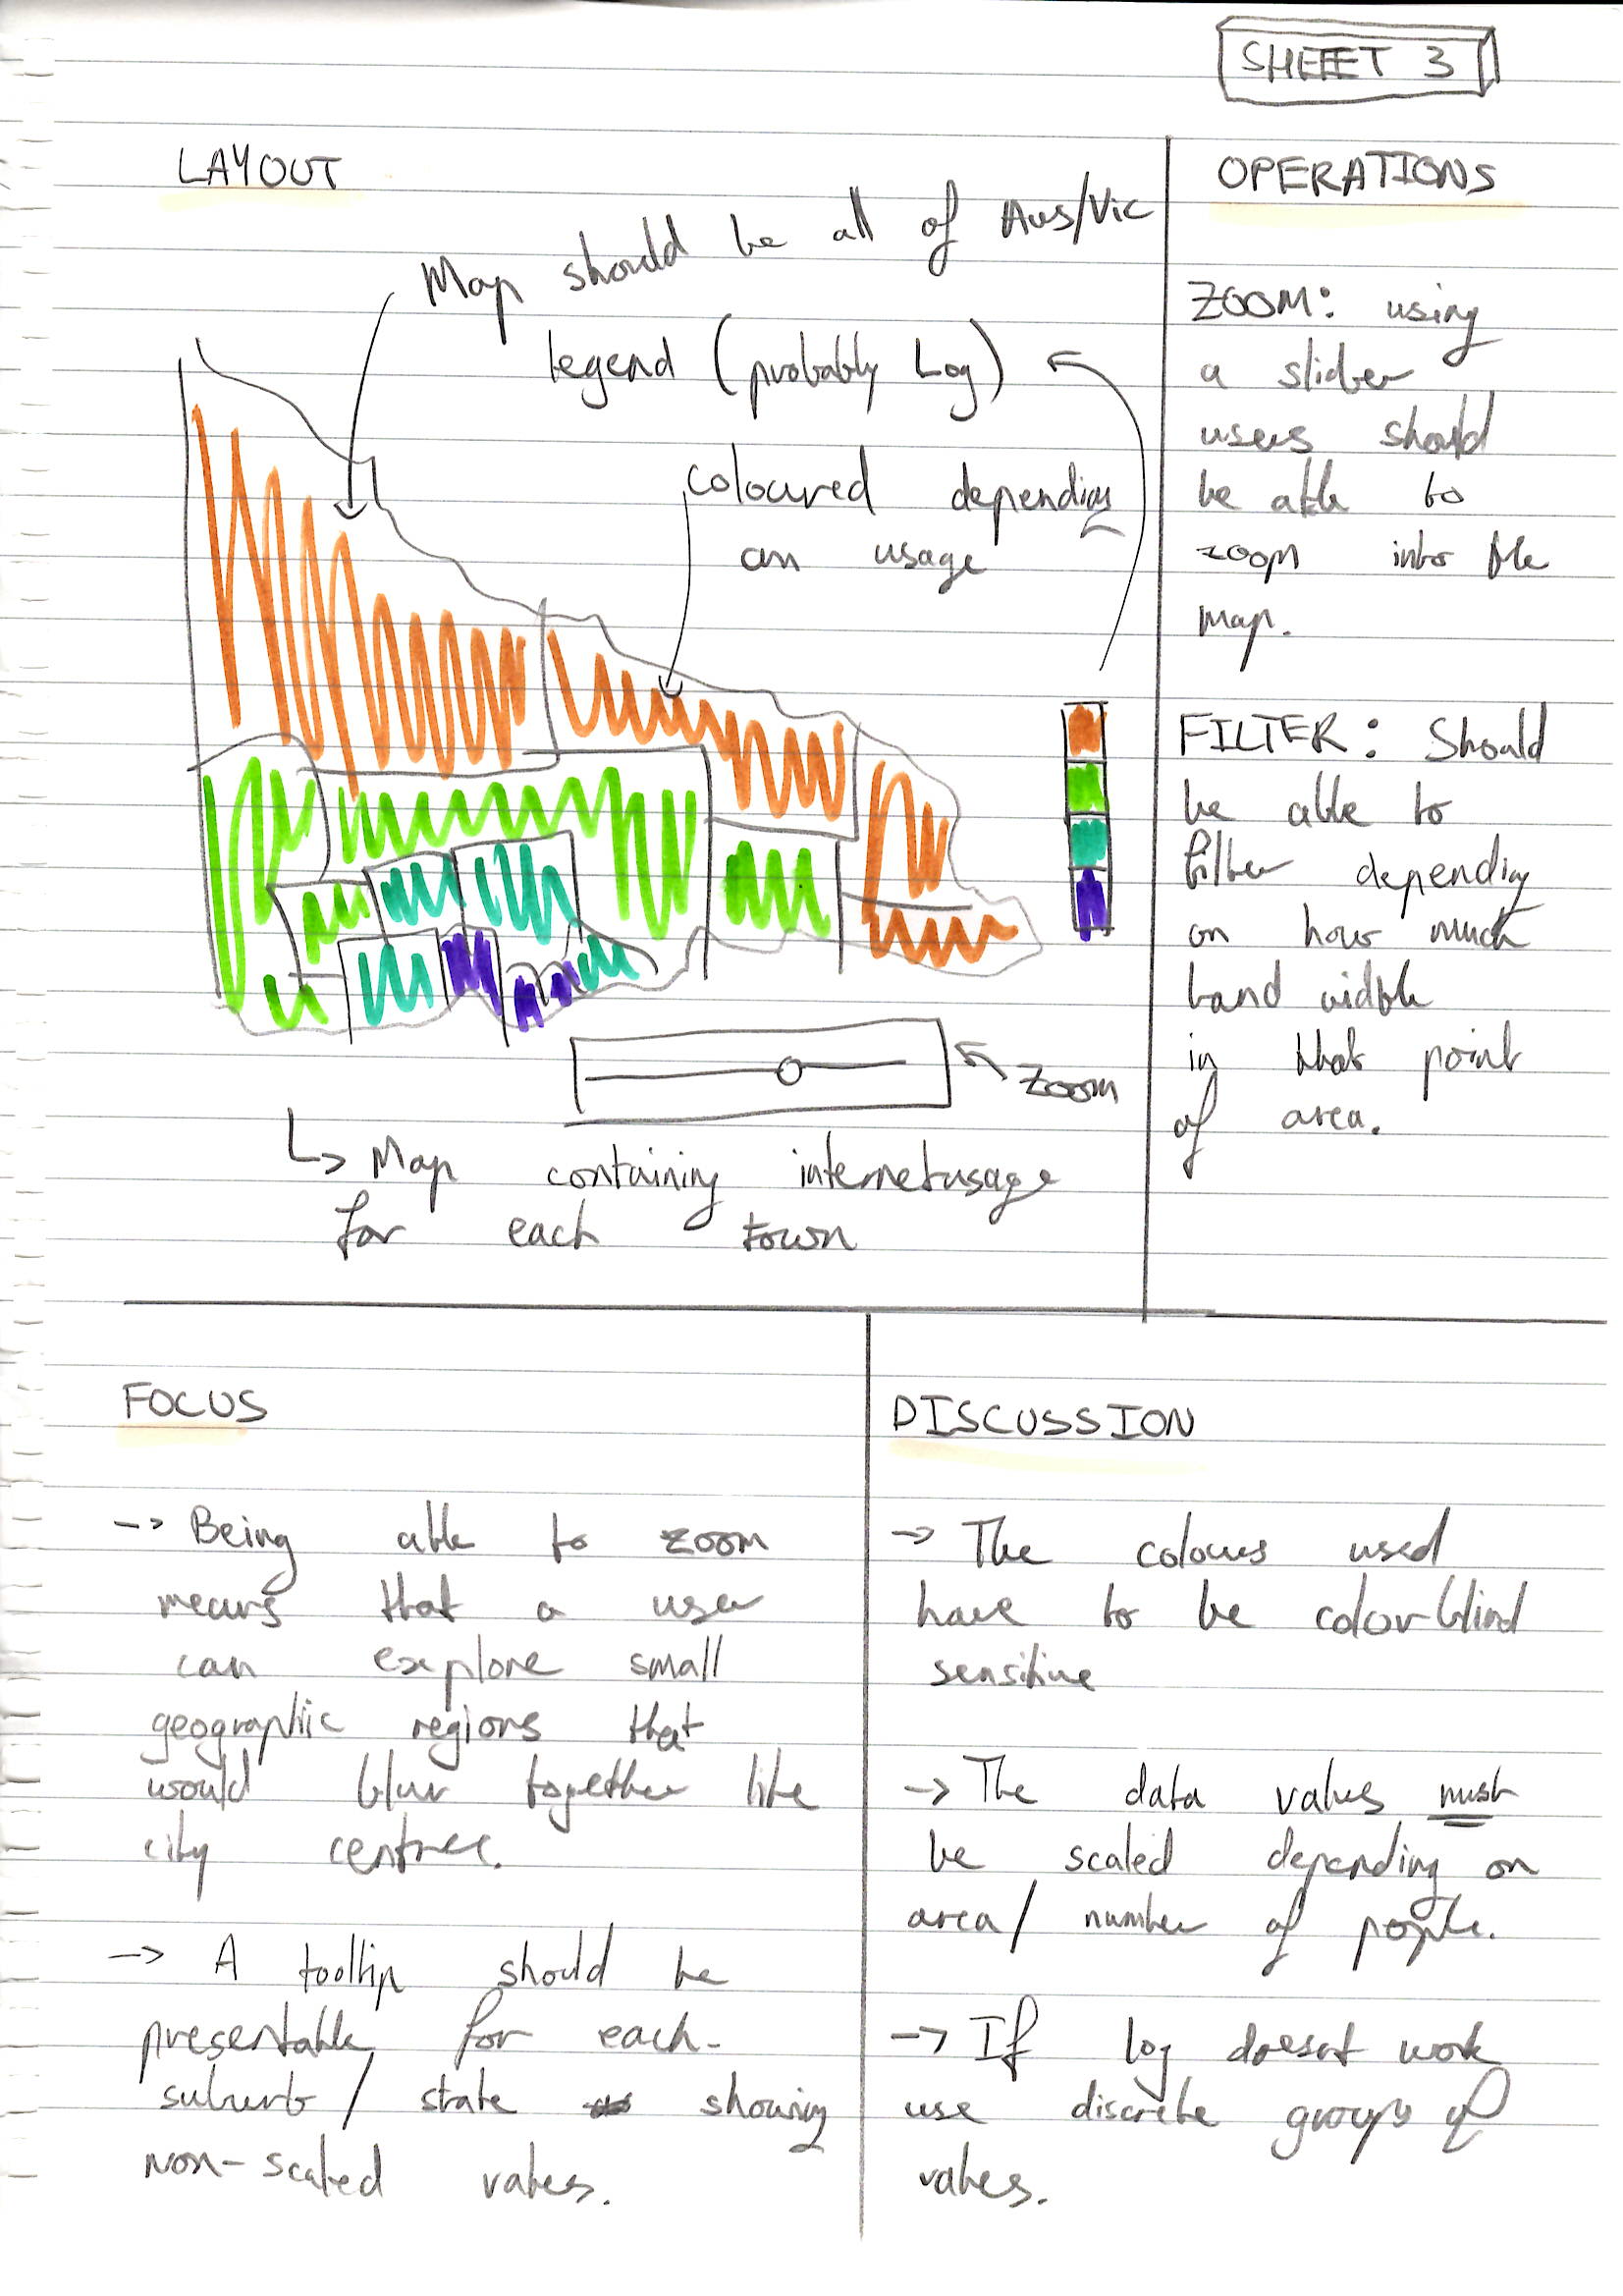 SHEEET 3
LAYOUT
Map should be all of Aus/Vic
legend (probably Log)
coloured depending
on usage
Zoom
↳ Map containing internet usage
for each town
OPERATIONS
ZOOM: using
a slider
users should
be able to
zoom into the
map.
FILTER: Should
be able to
filter depending
on how much
band width
in that point
of area.
FOCUS
-> Being able to zoom
means that a user
can explore small
geographic regions that
would blur together like
city centres.
-> A tooltip should be
presentable for each
suburb / state showing
non-scaled values.
DISCUSSION
-> The colours used
have to be colour-blind
sensitive
-> The data values must
be scaled depending on
area / number of people.
-> If log doesnt work
use discrete groups of
values.